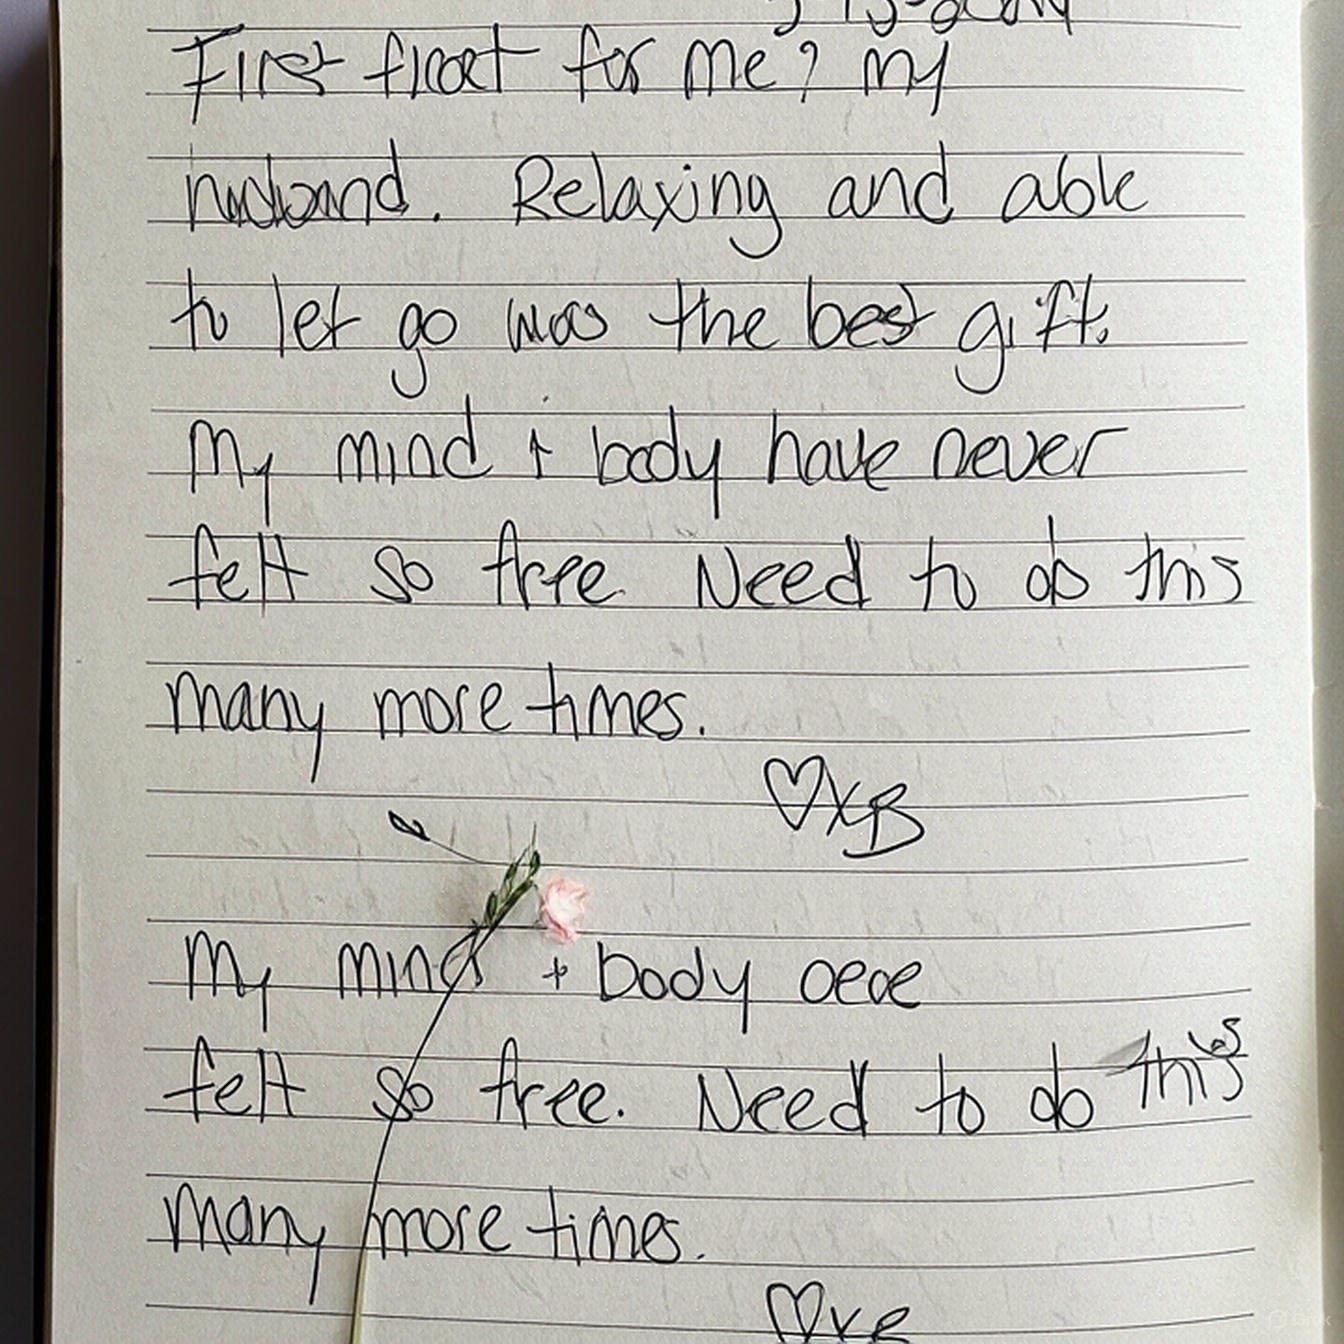 First float for me? My
husband. Relaxing and able
to let go was the best gift.
My mind + body have never
felt so free. Need to do this
many more times.
♡XB
My mind + body
felt so free. Need to do this
many more times.